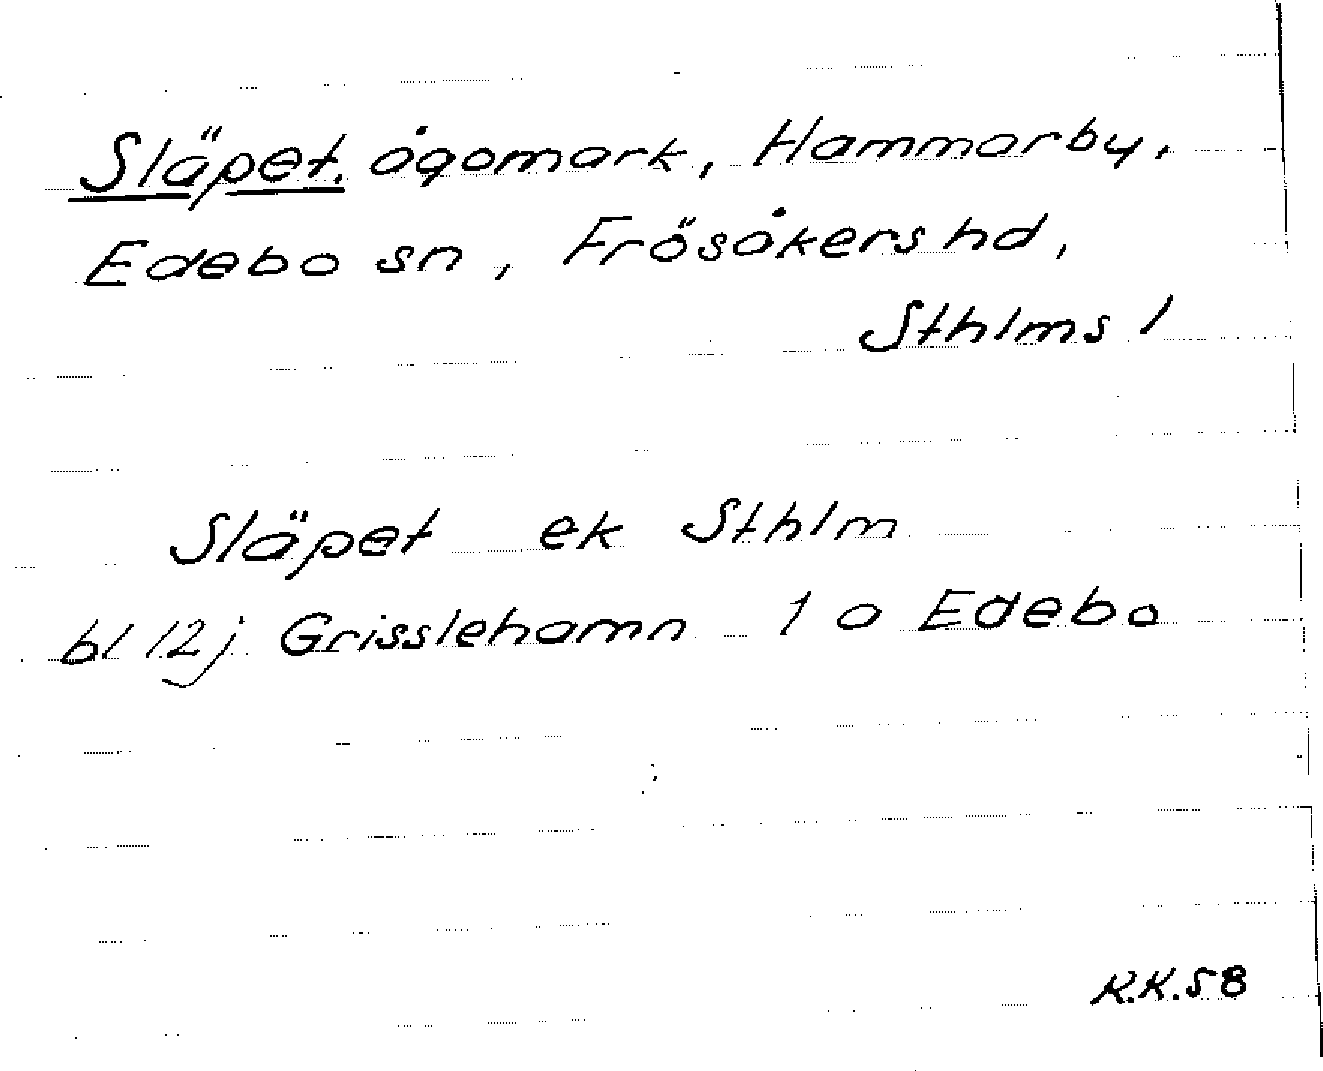 Släpet. ägomark, Hammarby,
Edebo sn, Frösåkers hd,
Sthlms l
Släpet ek Sthlm
bl 12j Grisslehamn 1 a Edebo
R.K.58